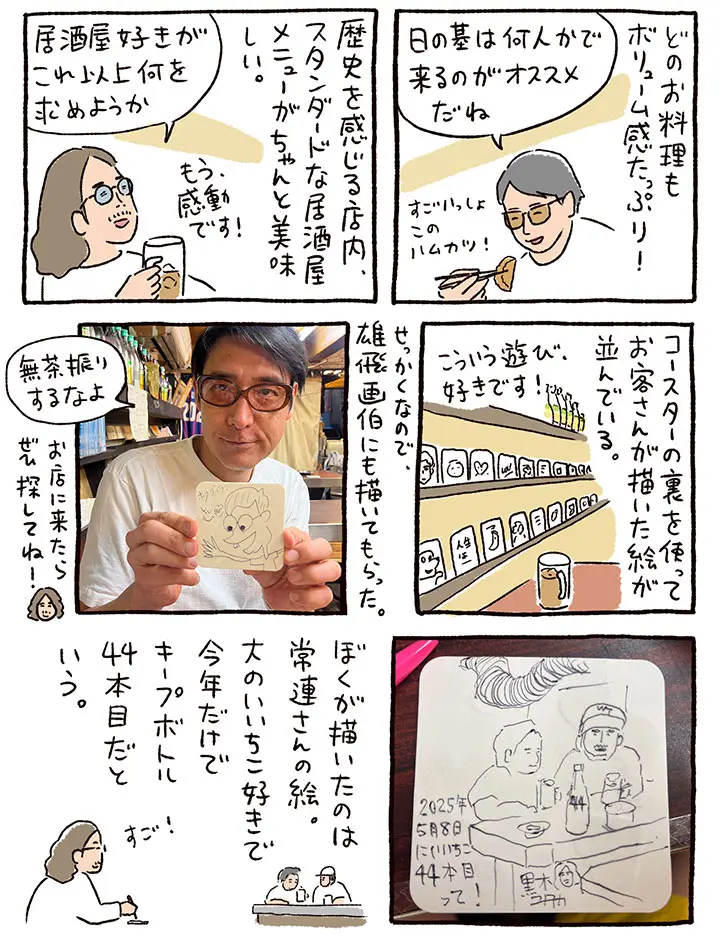 どのお料理も
ボリューム感たっぷり！
日の基は何人かで
来るのがオススメ
だね
すごいっしょ
この
ハムカツ！
歴史を感じる店内、
スタンダードな居酒屋
メニューがちゃんと美味
しい。
居酒屋好きが
これ以上何を
求めようか
もう、
感動
です！
コースターの裏を使って
お客さんが描いた絵が
並んでいる。
こういう遊び、
好きです！
人生
は
せっかくなので、
雄飛画伯にも描いてもらった。
無茶振り
するなよ
お店に来たら
ぜひ探してね！
2025年
5月8日
にいいちこ
44本目
って！
44
黒木
ユタカ
ぼくが描いたのは
常連さんの絵。
大のいいちこ好きで
今年だけで
キープボトル
44本目だと
いう。
すご！